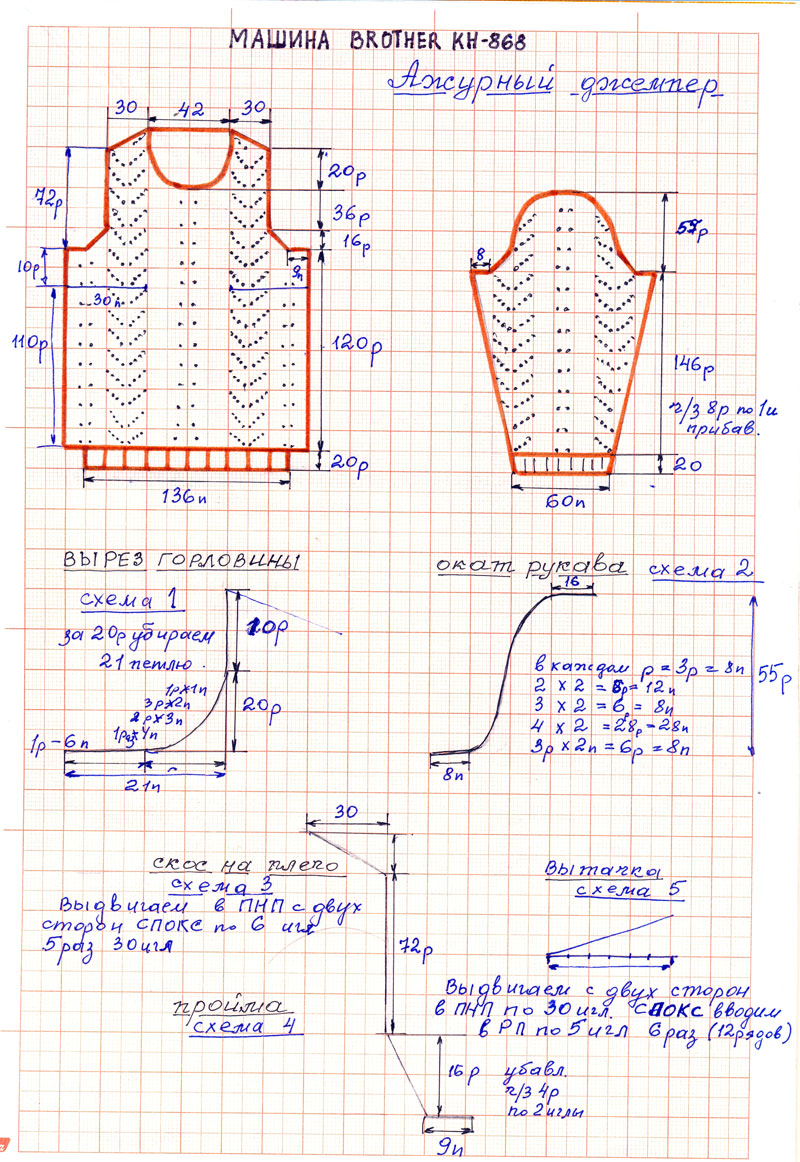 МАШИНА BROTHER KH-868
Ажурный джемпер
30 42 30
72р
20р
36р
16р
10р
9п
30п
110р
120р
20р
136п
8
146р
ч/з 8р по 1и
прибав.
20
60п
ВЫРЕЗ ГОРЛОВИНЫ
схема 1
за 20р убираем
21 петлю.
1р×1п
3р×2п
2р×3п
1р-6п
10р
20р
21п
окат рукава схема 2
16
в каждом р = 3р = 8п
2 × 2 = 8р = 12п
3 × 2 = 6р = 8п
4 × 2 = 28р - 28п
3р × 2п = 6р = 8п
55р
8п
30
скос на плечо
схема 3
Выдвигаем в ПНП с двух
сторон СПОКС по 6 игл
5 раз 30 игл
72р
пройма
схема 4
16р убавл.
ч/з 4р
по 2 иглы
9п
Вытачка
схема 5
Выдвигаем с двух сторон
в ПНП по 30 игл. СПОКС вводим
в РП по 5 игл 6 раз (12 рядов)